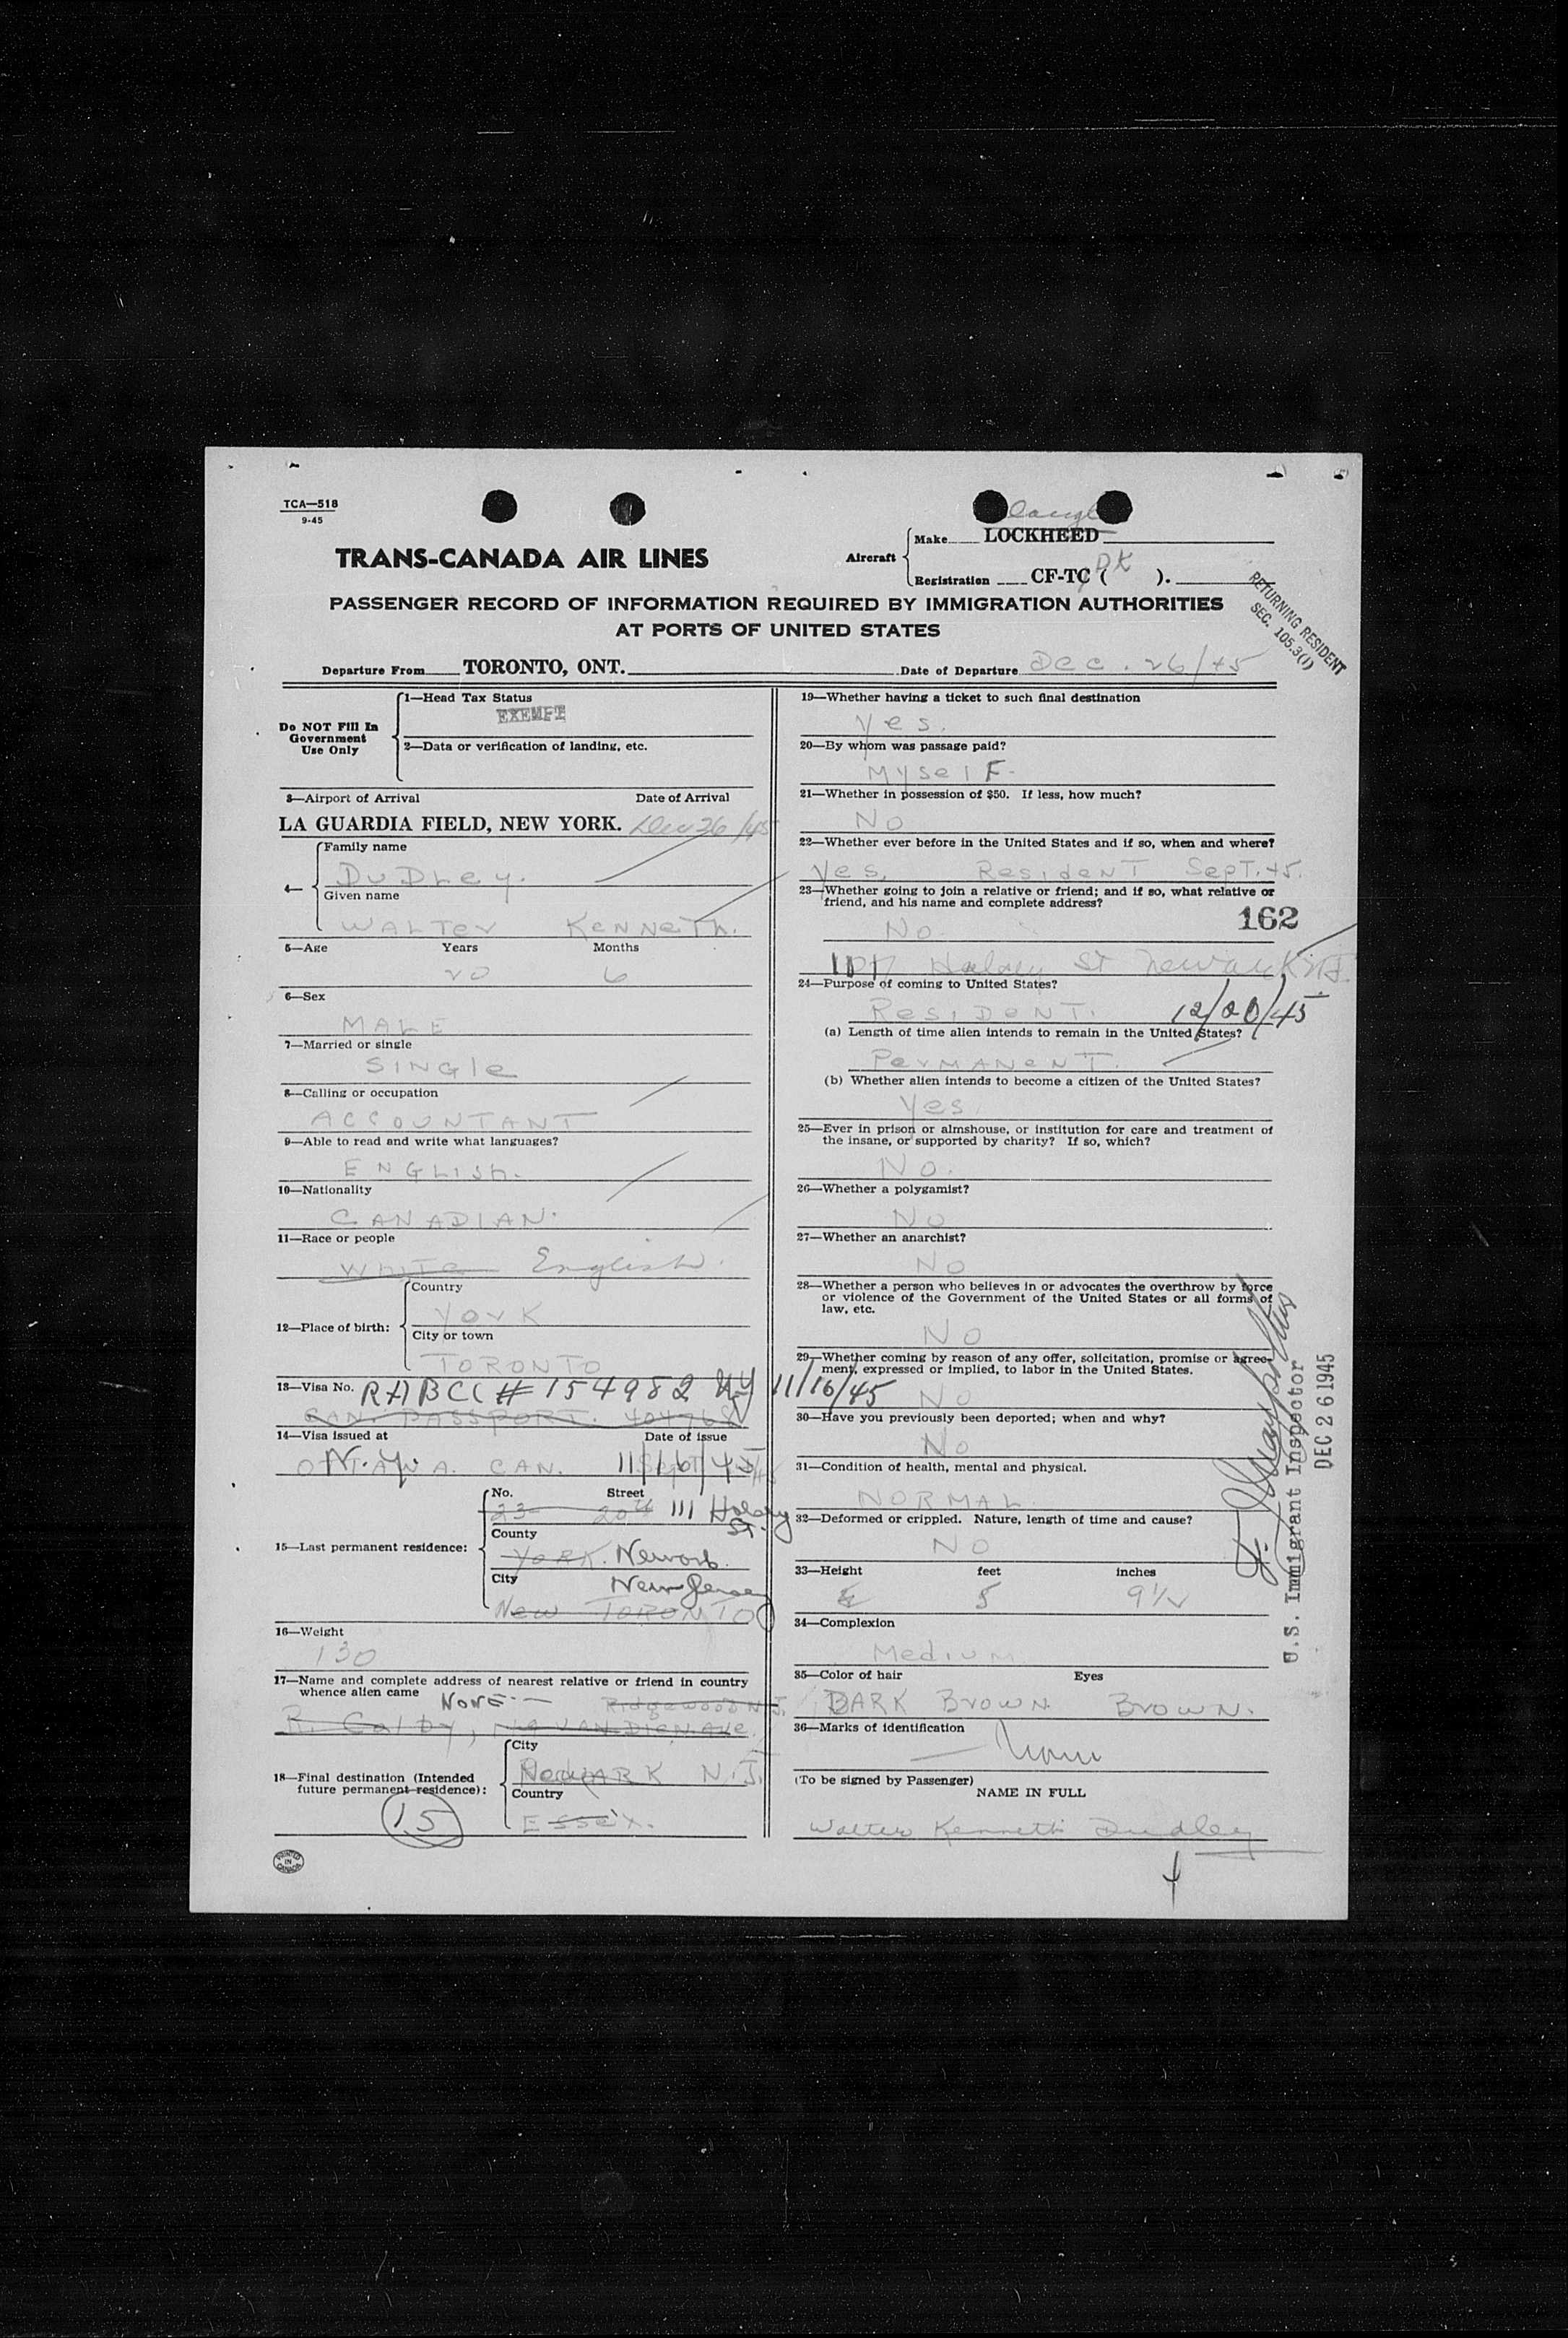 TCA—518
9-45
TRANS-CANADA AIR LINES
Aircraft
Make LOCKHEED
Registration CF-TC ( DK ).
RETURNING RESIDENT
SEC. 105.3(1)
PASSENGER RECORD OF INFORMATION REQUIRED BY IMMIGRATION AUTHORITIES
AT PORTS OF UNITED STATES
Departure From TORONTO, ONT.
Date of Departure Dec. 26/45
Do NOT Fill In
Government
Use Only
1—Head Tax Status
EXEMPT
2—Data or verification of landing, etc.
3—Airport of Arrival Date of Arrival
LA GUARDIA FIELD, NEW YORK. Dec 26/45
4—
Family name
DUDLey.
Given name
WALTER KENNETH.
5—Age Years Months
20 6
6—Sex
MALE
7—Married or single
SINGLE
8—Calling or occupation
ACCOUNTANT
9—Able to read and write what languages?
ENGLISH.
10—Nationality
CANADIAN.
11—Race or people
WHITE English.
12—Place of birth:
Country
YORK
City or town
TORONTO
13—Visa No. RABCC # 154982 NY 11/16/45
CAN. PASSPORT. 404768
14—Visa issued at Date of issue
N.Y. 11/16/45
OTTAWA. CAN.
15—Last permanent residence:
No. Street
23 20th 111 Halsey
St.
County
YORK. Newark
City New Jersey
New TORONTO
16—Weight
130
17—Name and complete address of nearest relative or friend in country
whence alien came NONE— Ridgewood N.J.
R. Calby, VAN DIEN AVE.
18—Final destination (Intended
future permanent residence):
City
NewARK N.J.
Country
Essex.
15
PRINTED
IN
CANADA
19—Whether having a ticket to such final destination
Yes.
20—By whom was passage paid?
MyselF.
21—Whether in possession of $50. If less, how much?
No
22—Whether ever before in the United States and if so, when and where?
Yes, Resident Sept. 45.
23—Whether going to join a relative or friend; and if so, what relative or
friend, and his name and complete address?
162
No.
Halsey St Newark N.J.
24—Purpose of coming to United States?
ResiDeNT. 12/20/45
(a) Length of time alien intends to remain in the United States?
PerMANeNT.
(b) Whether alien intends to become a citizen of the United States?
Yes.
25—Ever in prison or almshouse, or institution for care and treatment of
the insane, or supported by charity? If so, which?
No.
26—Whether a polygamist?
No
27—Whether an anarchist?
No
28—Whether a person who believes in or advocates the overthrow by force
or violence of the Government of the United States or all forms of
law, etc.
No
29—Whether coming by reason of any offer, solicitation, promise or agree-
ment, expressed or implied, to labor in the United States.
No
30—Have you previously been deported; when and why?
No
31—Condition of health, mental and physical.
NORMAL
32—Deformed or crippled. Nature, length of time and cause?
No
33—Height feet inches
5 9½
34—Complexion
Medium
35—Color of hair Eyes
DARK BROWN BROWN.
36—Marks of identification
— None
(To be signed by Passenger)
NAME IN FULL
Walter Kenneth Dudley
U.S. Immigrant Inspector
DEC 26 1945